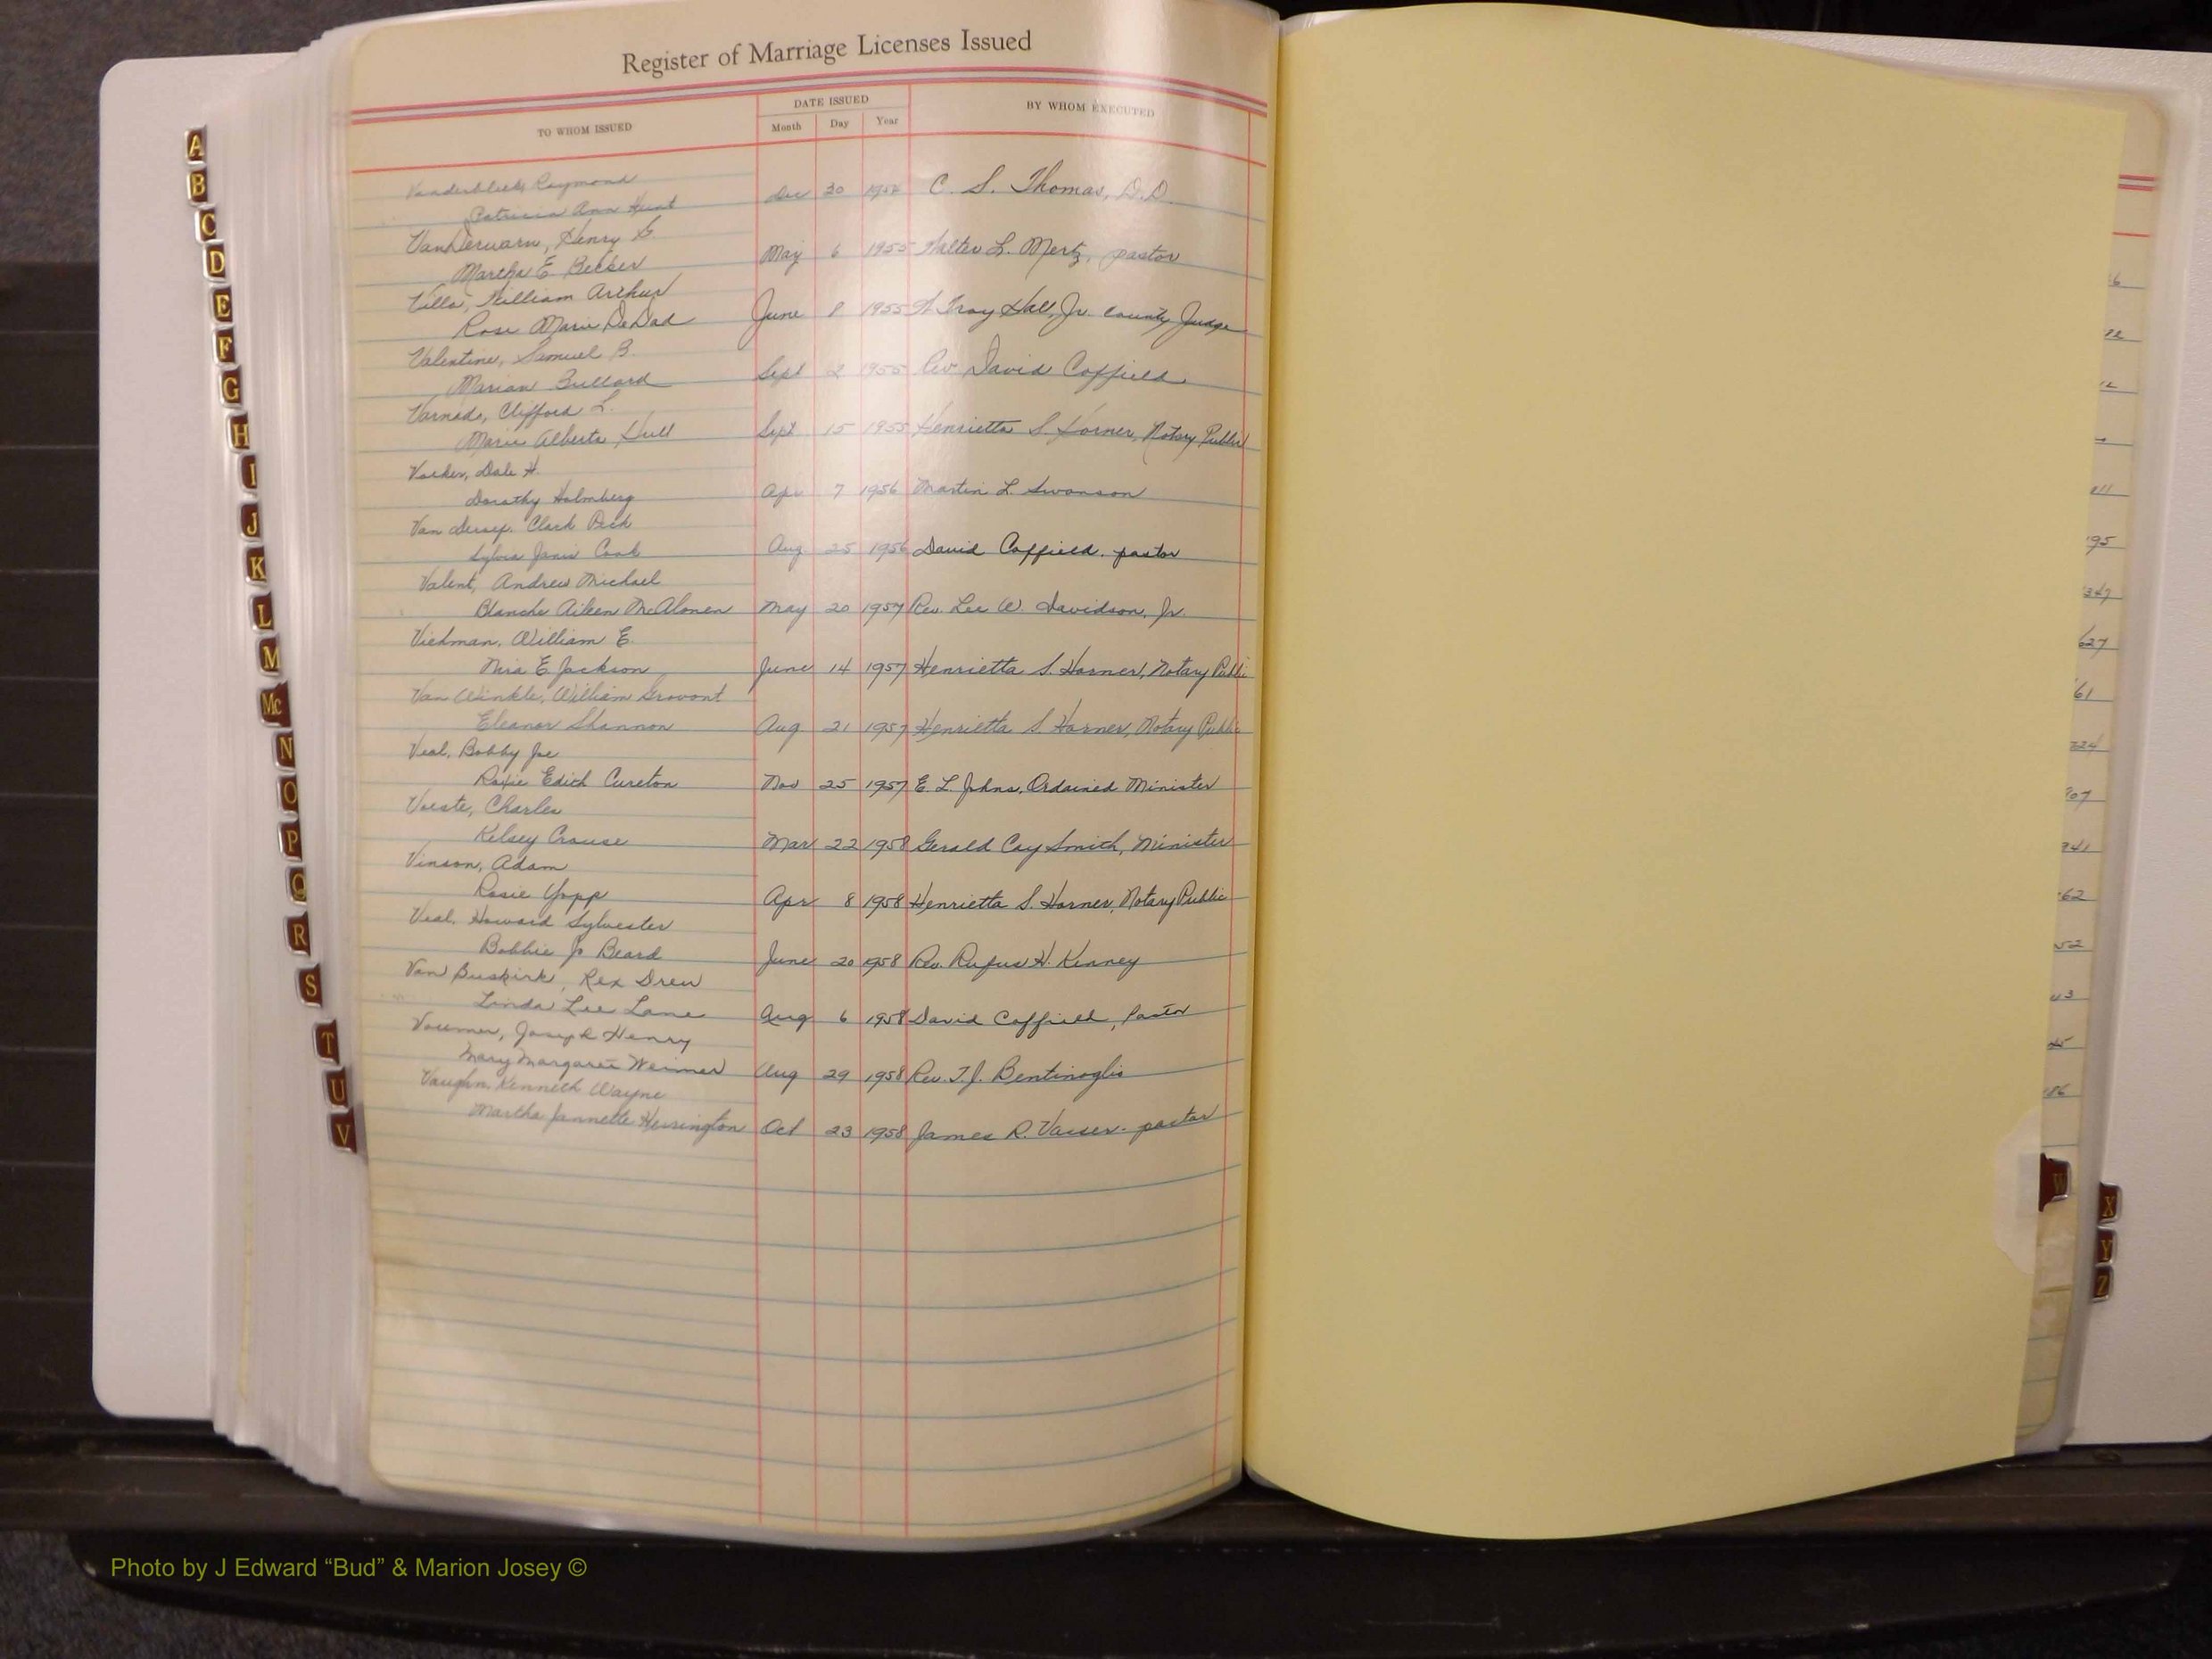 Register of Marriage Licenses Issued
TO WHOM ISSUED
DATE ISSUED
Month Day Year
BY WHOM EXECUTED
Raymond
Patricia Ann Hunt Dec 30 C. S. Thomas, D.D.
Henry G.
Martha E. Becker May 6 1955 Walter L. Mertz, pastor
Villa, William Arthur
Rose Marie DeDad June 8 1955 W Troy Hall, Jr. County Judge
Valentine, Samuel B.
Marian Bullard Sept 2 1955 Rev David Coffield
Clifford L.
Marie Alberta Hull Sept 15 1955 Henrietta S. Horner, Notary Public
Dale H.
Dorothy Holmberg Apr 7 1956 Martin L. Swanson
Van
Sylvia Janis Cook Aug 25 1956 David Coffield, pastor
Valent, Andrew Michael
Blanche Aiken McAlonen May 20 1957 Rev. Lee W. Davidson, Jr.
Viedman, William E.
E. Jackson June 14 1957 Henrietta S. Horner, Notary Public
Van Winkle, William
Eleanor Shannon Aug 21 1957 Henrietta S. Horner, Notary Public
Veal, Bobby Joe
Roxie Edith Cureton Nov 25 1957 E. L. Johns, Ordained Minister
Voeste, Charles
Kelsey Crouse Mar 22 1958 Gerald Coy Smith, Minister
Vinson, Adam
Rosie Yopp Apr 8 1958 Henrietta S. Horner, Notary Public
Veal, Howard Sylvester
Bobbie Jo Beard June 20 1958 Rev. Rufus H. Kinney
Van Buskirk, Rex Drew
Linda Lee Lane Aug 6 1958 David Coffield, Pastor
Joseph Henry
Mary Margaret Weimer Aug 29 1958 Rev. T. J. Bentinoglio
Vaughn, Kenneth Wayne
Martha Jannette Herrington Oct 23 1958 James R. pastor
A
B
C
D
E
F
G
H
I
J
K
L
M
Mc
N
O
P
Q
R
S
T
U
V
W
X
Y
Z
Photo by J Edward “Bud” & Marion Josey ©